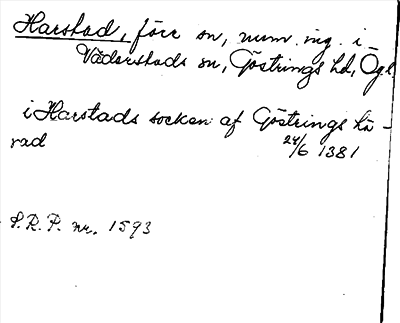 Harstad, förr sn, num. ing. i
Väderstads sn, Göstrings hd, Ögl
i Harstads socken af Göstrings hä-
rad 24/6 1381
S.R.P. nr. 1593